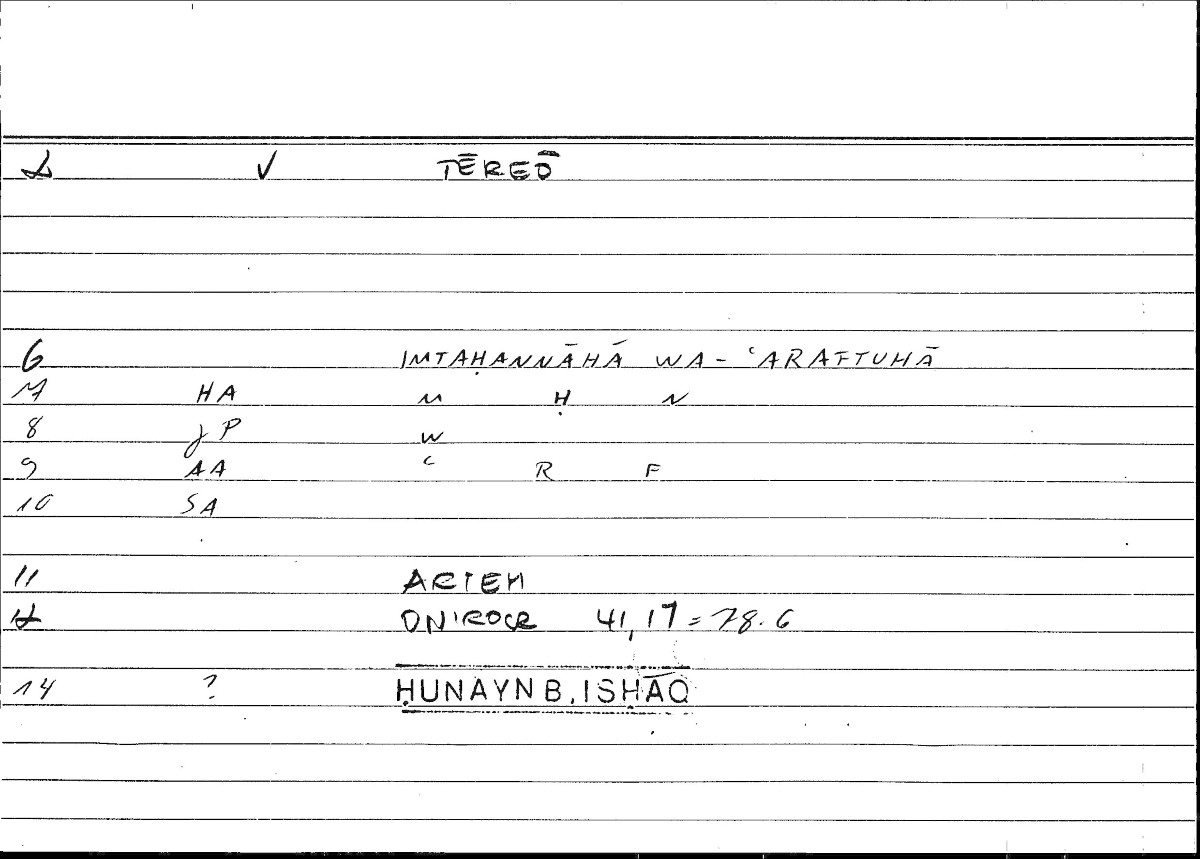 2 V TĒREŌ
6 IMTAḤANNĀHĀ WA- ʿARAFTUHĀ
7 HA M Ḥ N
8 JP W
9 AA ʿ R F
10 SA
11 ARTEM
12 ONIROCR 41,17 = 78.6
14 ? ḤUNAYN B. ISḤĀQ